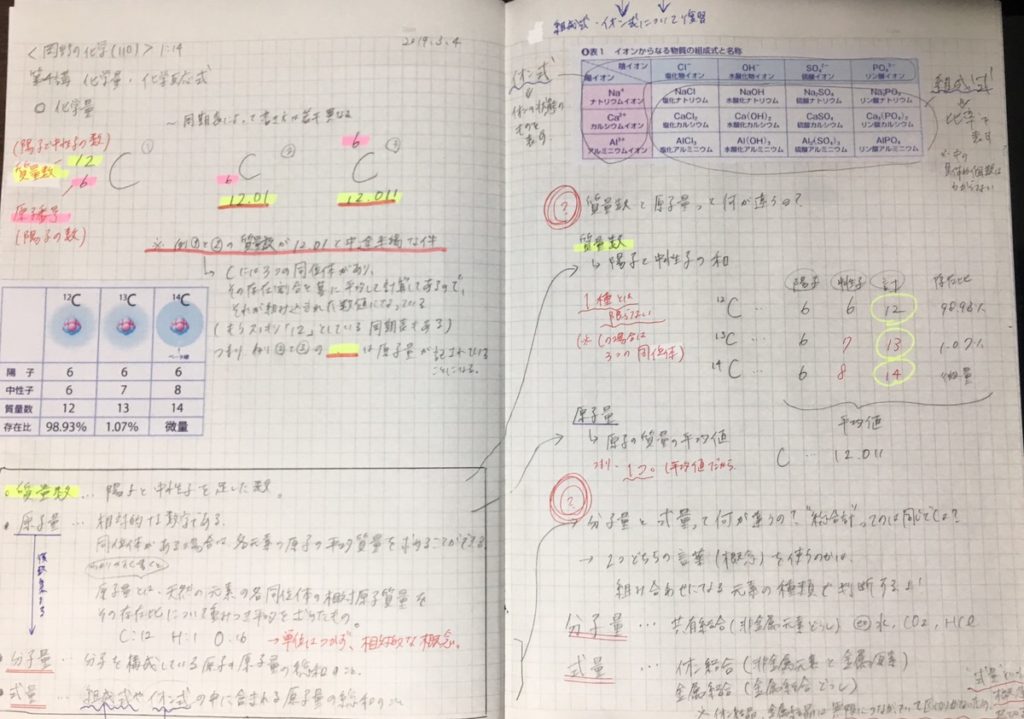 <岡野の化学(110)> 1:14
2019.3.4
第4講 化学量・化学反応式
○ 化学量
〜同期表によって書き方が若干異なる
(陽子と中性子の数)
質量数 12
6
C
①
原子番号
(陽子の数)
6 C ②
12.01
6
C ③
12.011
※ 例②と③の質量数が12.01と中途半端な件
↳ Cには3つの同位体があり、
その存在割合を基に平均して計算してあるので、
それが組み込まれた数値になっている
(もちろん「12」としている同期表もある)
つまり 例②と③の は原子量が記されている
ことになる。
12C 13C 14C
ベータ線
陽子 6 6 6
中性子 6 7 8
質量数 12 13 14
存在比 98.93% 1.07% 微量
○ 質量数 … 陽子と中性子を足した数。
● 原子量 … 相対的な数字である。
同位体がある場合は、各元素の原子の平均質量を求めることができる
原子量とは、天然の元素の各同位体の相対原子質量を
その存在比について重みつき平均を求めたもの。
C:12 H:1 O:16
→単位はつかず、相対的な概念。
● 分子量 … 分子を構成している原子の原子量の総和のこと。
● 式量 … 組成式やイオン式の中に含まれる原子量の総和のこと
組成式・イオン式について復習
❶表1 イオンからなる物質の組成式と名称
陰イオン
陽イオン
Cl⁻ 塩化物イオン
OH⁻ 水酸化物イオン
SO₄²⁻ 硫酸イオン
PO₄³⁻ リン酸イオン
Na⁺ ナトリウムイオン
NaCl 塩化ナトリウム
NaOH 水酸化ナトリウム
Na₂SO₄ 硫酸ナトリウム
Na₃PO₄ リン酸ナトリウム
Ca²⁺ カルシウムイオン
CaCl₂ 塩化カルシウム
Ca(OH)₂ 水酸化カルシウム
CaSO₄ 硫酸カルシウム
Ca₃(PO₄)₂ リン酸カルシウム
Al³⁺ アルミニウムイオン
AlCl₃ 塩化アルミニウム
Al(OH)₃ 水酸化アルミニウム
Al₂(SO₄)₃ 硫酸アルミニウム
AlPO₄ リン酸アルミニウム
イオン式
イオンの状態の
ものを
表す
組成式
化学で
表す
? 質量数と原子量って何が違うの?
質量数
↳ 陽子と中性子の和
1種とは
限らない
(※Cの場合は
3つの同位体)
陽子 中性子 計 存在比
12C … 6 6 12 98.93%
13C … 6 7 13 1.07%
14C … 6 8 14 微量
原子量
↳ 原子の質量の平均値
つまり、1つ。(平均値だから
平均値
C … 12.011
?
→ 分子量と式量って何が違うの?"総合計"ってのは同じでしょ?
→ 2つどちらの言葉(概念)を使うのかは
組み合わせになる元素の種類で判断するよ!
分子量 … 共有結合(非金属元素どうし) 例 水, CO₂, HCl
式量 … イオン結合(非金属元素と金属元素)
金属結合(金属結合どうし)